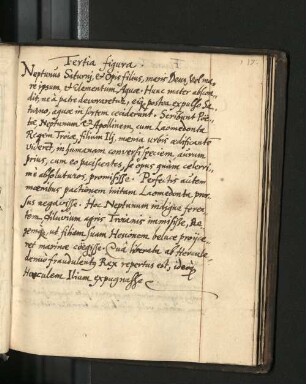 Tertia figura
Neptunus Saturni, et Opis filius, maris Deus, vel ma,
re ipsum, et elementum Aquae. Hunc mater abscon,
dit, ne à patre devoraretur, eiq3 postea expulso Sa,
turno, aquae in sortem ceciderunt. Scribunt Poe,
tae Neptunum et Apollinem, cum Laomedonta
Regem Troiae, filium Ilj, moenia urbis aedificante
viderent, in humanam conversi speciem, aurum
prius, cum eo paciscentes, se opus quàm celerri,
mè absoluturos, promisisse. Perfectis autem
moenibus pactionem initam Laomedonta, pror,
sus negavisse. Hoc Neptunum indignè feren,
tem, diluvium agris Troianis immisisse, Re,
gemq3, ut filiam suam Hesionem beluae projice,
ret marinae coëgisse. Quâ liberatâ ab Hercule
denuò fraudulentus Rex repertus est, ideoq3
Herculem Ilium expugnasse